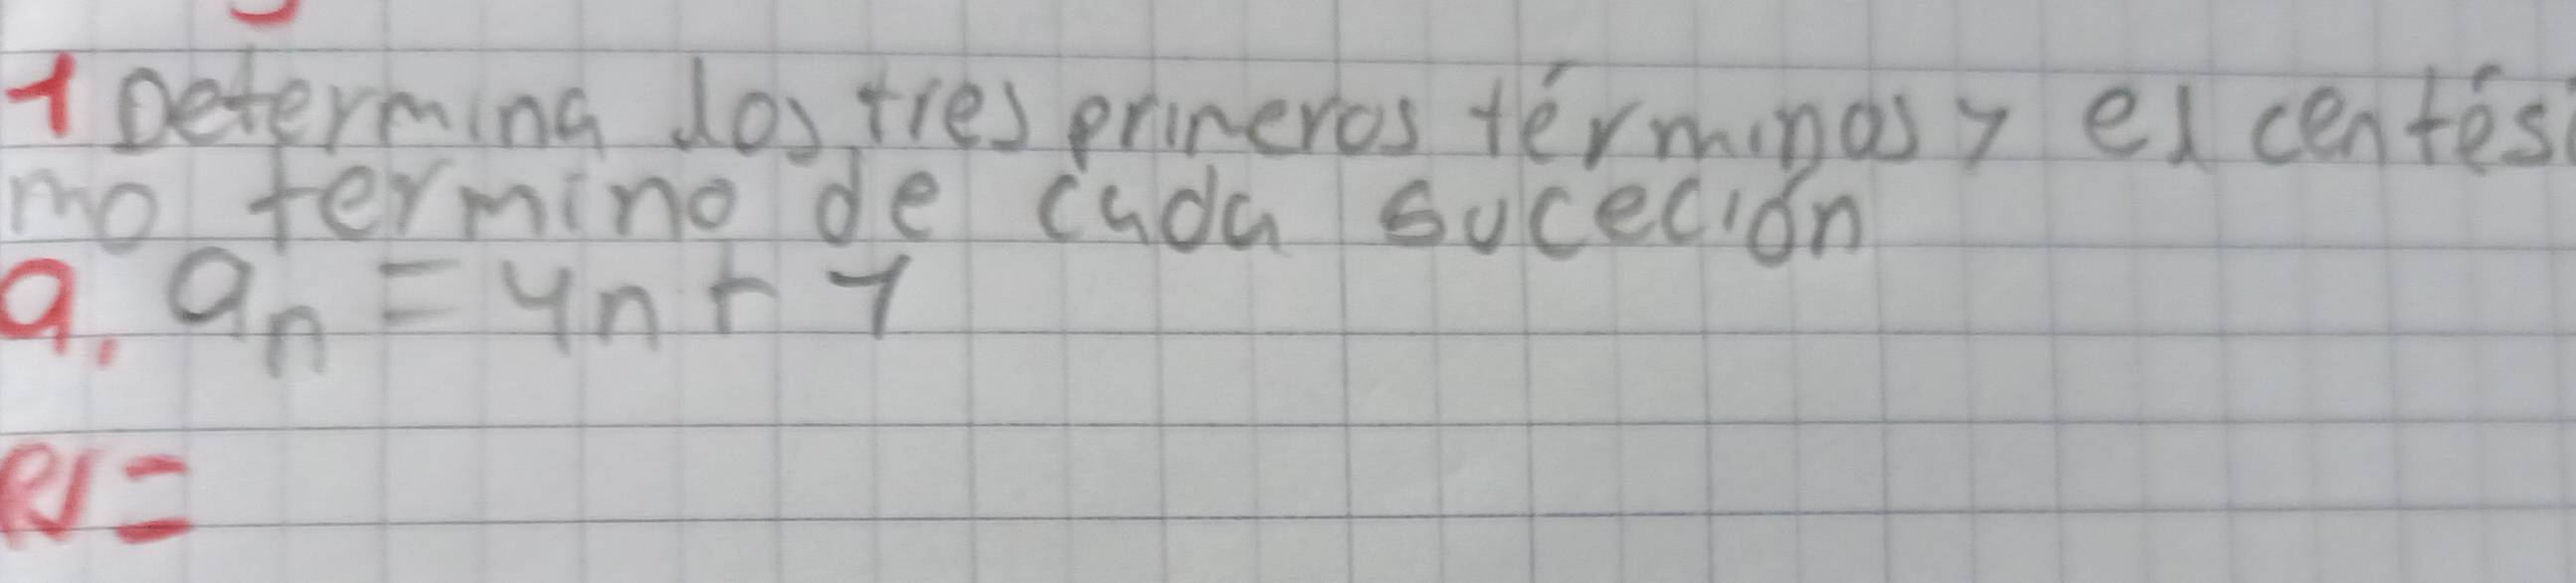 1 Determina los tres prineros términos y el centési
mo termino de cada suceción
a. an = 4n + 1
R/=